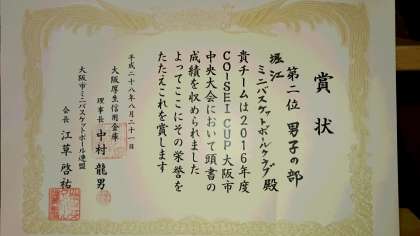 賞状
第二位 男子の部
堀江
ミニバスケットボールクラブ 殿
貴チームは2016年度
CO-SEI CUP 大阪市
中央大会において頭書の
成績を収められました
よってここにその栄誉を
たたえこれを賞します
平成二十八年八月二十一日
大阪厚生信用金庫
理事長 中村 龍男
大阪市ミニバスケットボール連盟
会長 江草 啓祐